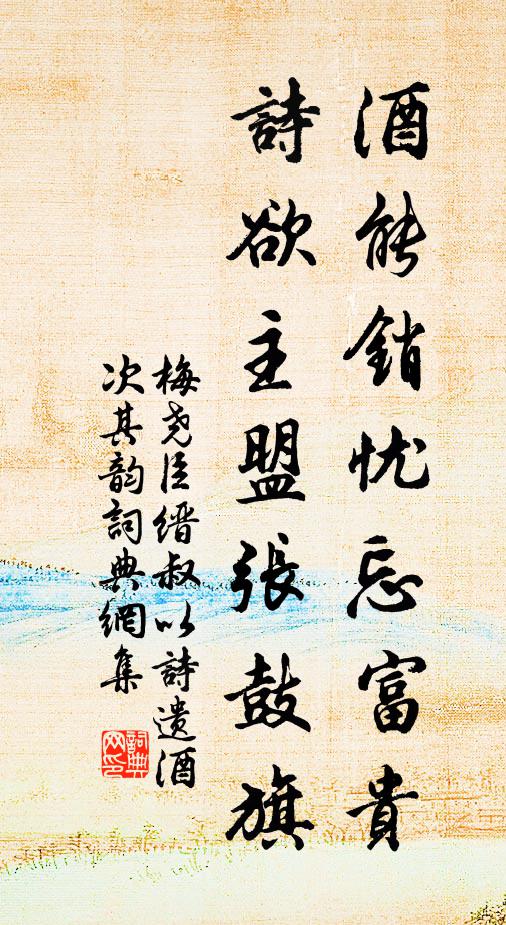 酒能銷忧忘富貴
詩欲主盟張鼓旗
梅尧臣缙叔以詩遗酒
次其韵詞典網集
詞典
网印